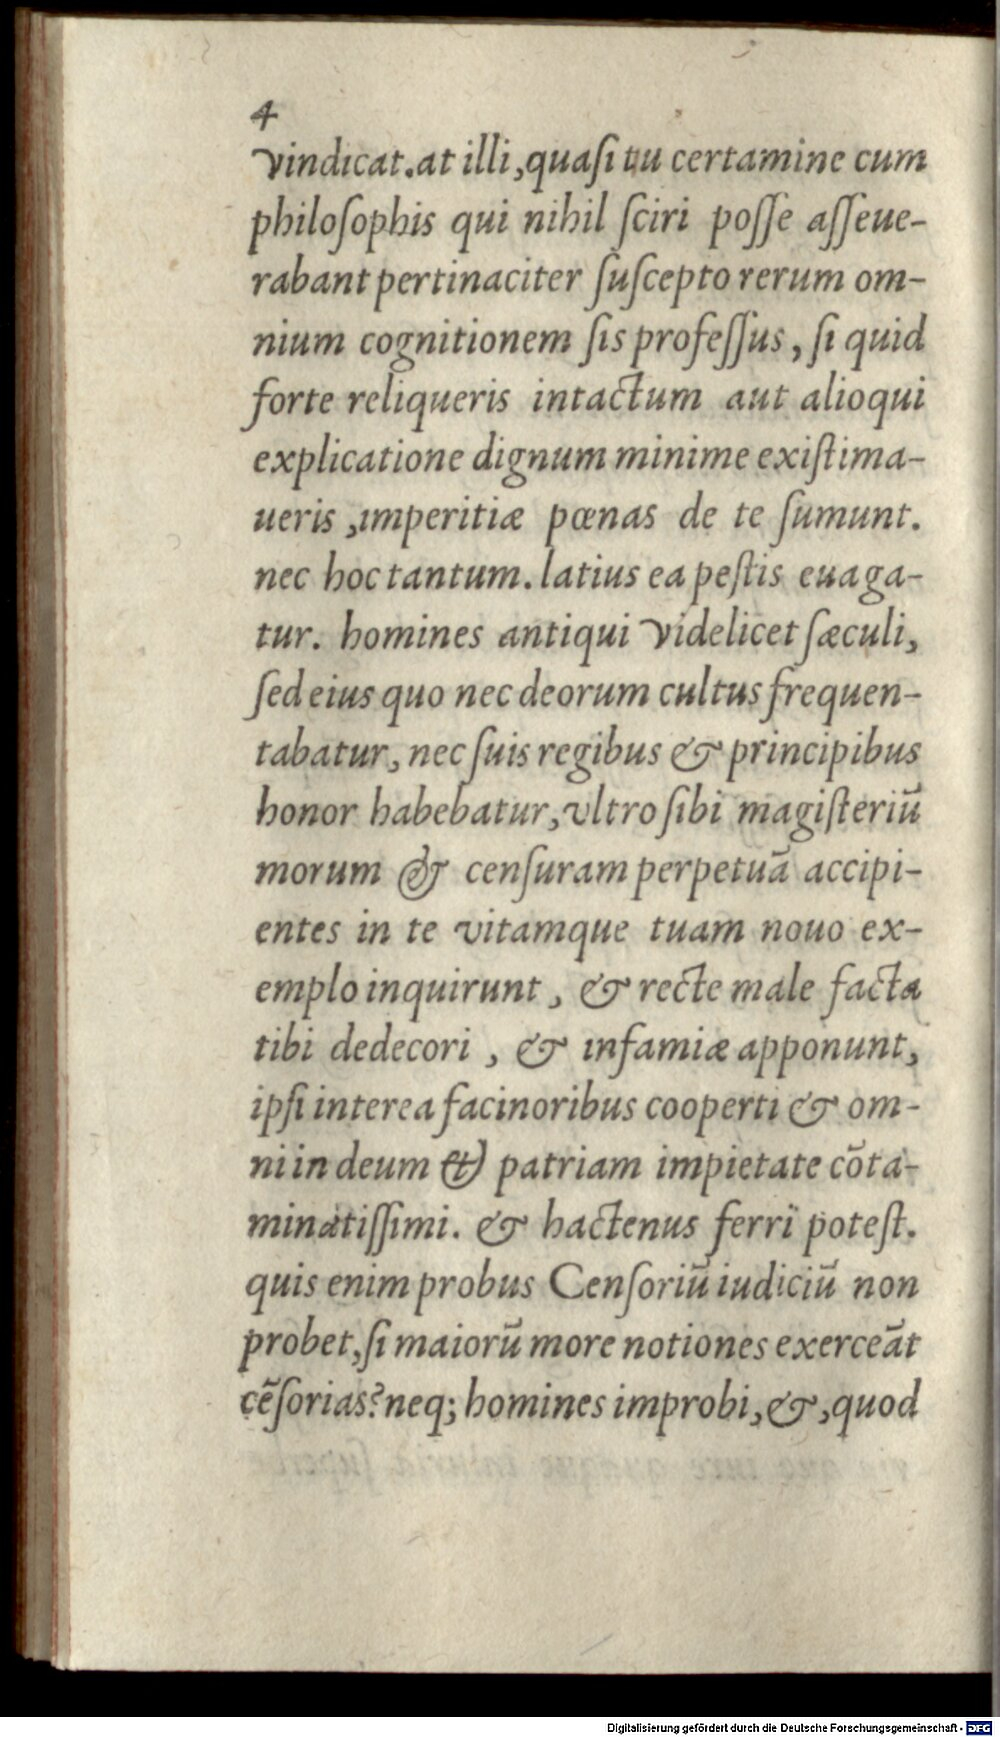 4
vindicat.at illi,quaſi tu certamine cum
philoſophis qui nihil ſciri poſſe aſſeue-
rabant pertinaciter ſuſcepto rerum om-
nium cognitionem ſis profeſſus, ſi quid
forte reliqueris intactum aut alioqui
explicatione dignum minime exiſtima-
ueris ,imperitiæ pœnas de te ſumunt.
nec hoc tantum. latius ea peſtis euaga-
tur. homines antiqui videlicet ſæculi,
ſed eius quo nec deorum cultus frequen-
tabatur, nec ſuis regibus & principibus
honor habebatur,vltro ſibi magiſteriū
morum & cenſuram perpetuā accipi-
entes in te vitamque tuam nouo ex-
emplo inquirunt , & recte male facta
tibi dedecori , & infamiæ apponunt,
ipſi interea facinoribus cooperti & om-
ni in deum & patriam impietate cōta-
minatiſſimi. & hactenus ferri poteſt.
quis enim probus Cenſoriū iudiciū non
probet,ſi maiorū more notiones exerceāt
cēſorias? neq; homines improbi,&,quod
Digitalisierung gefördert durch die Deutsche Forschungsgemeinschaft - DFG